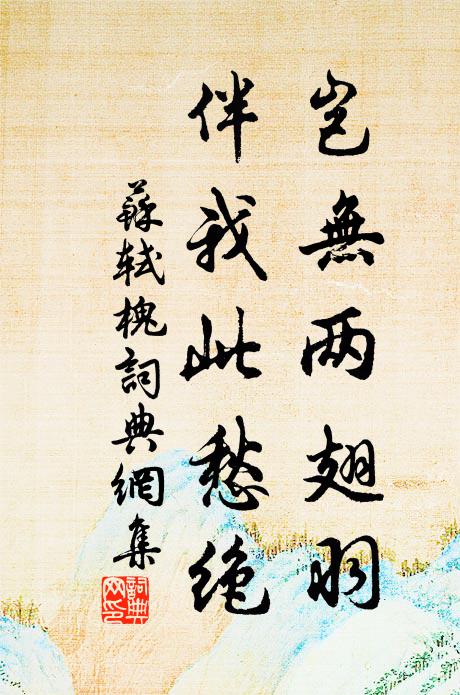 豈無两翅羽
伴我此愁絶
蘇軾槐詞典網集
詞典